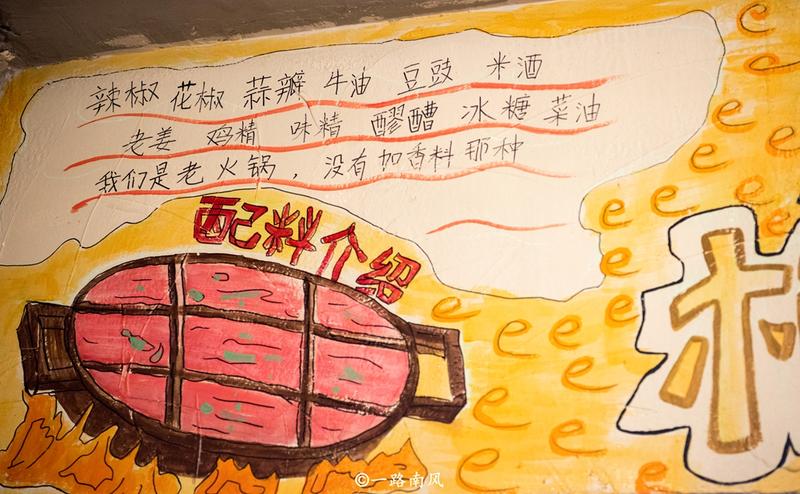 辣椒 花椒 蒜瓣 牛油 豆豉 米酒
老姜 鸡精 味精 醪醩 冰糖 菜油
我们是老火锅，没有加香料那种
配料介绍
©一路南风